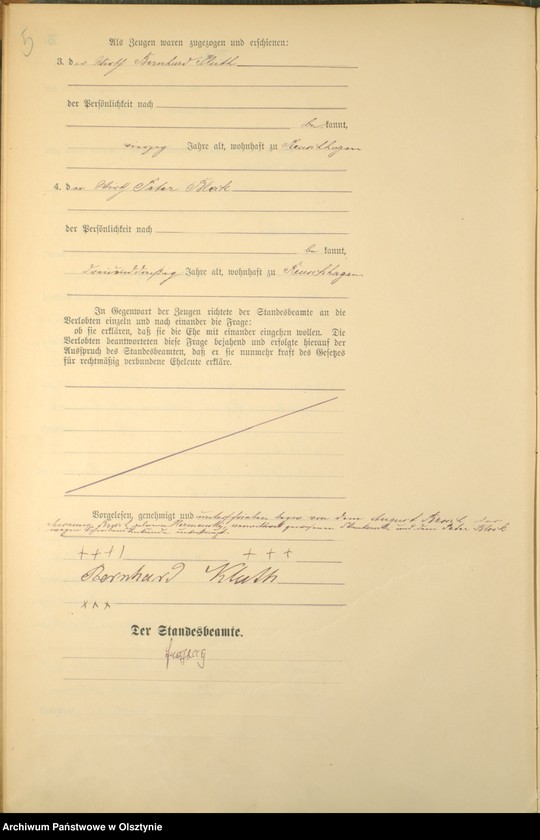 5
Als Zeugen waren zugezogen und erschienen:
3. der Wirth Bernhard Kluth
der Persönlichkeit nach
be kannt,
Jahre alt, wohnhaft zu Keuschhagen
4. der Wirth Peter Block
der Persönlichkeit nach
be kannt,
dreiunddreißig Jahre alt, wohnhaft zu Keuschhagen
In Gegenwart der Zeugen richtete der Standesbeamte an die
Verlobten einzeln und nach einander die Frage:
ob sie erklären, daß sie die Ehe mit einander eingehen wollen. Die
Verlobten beantworteten diese Frage bejahend und erfolgte hierauf der
Ausspruch des Standesbeamten, daß er sie nunmehr kraft des Gesetzes
für rechtmäßig verbundene Eheleute erkläre.
Vorgelesen, genehmigt und unterschrieben von dem August der
und dem Peter Block
wegen
+ + + +
Bernhard Kluth
x x x
Der Standesbeamte.
Archiwum Państwowe w Olsztynie